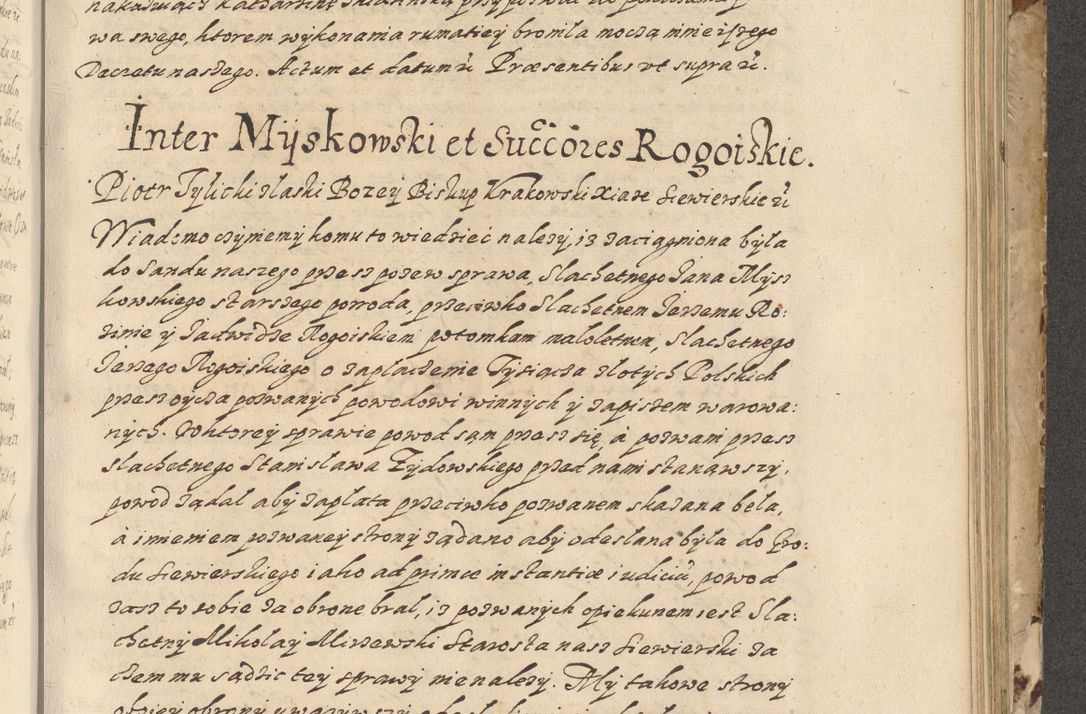 wa swego, ktorem wykonania rumatiey bronila moczą nınieiszego
Decretu naszego. Actum et datum etc. Præsentibus vt supra etc.
Inter Mÿskowski et Succõres Rogoiskie.
Piotr Tÿlicki zlaski Bozeÿ Biskup Krakowski Xiaze Siewierskie etc.
Wiadomo czÿniemÿ komu to wiedzieć nalezÿ, iz zaciągniona bÿła
do Sandu naszego przez pozew sprawa, Slachetnego Jana Mÿsz
kowskiego starszego powoda, przeciwko Slachetnem Jerzemu Ro:
zinie ÿ Jadwidze Rogoiskiem potomkam maloletnim, Slachetnego
Jerzego Rogoiskiego o zaplaczenie Tÿsiącza zlotÿch Polskich
przez oÿcza pozwanÿch powodowi winnÿch ÿ zapissem warowa:
nÿch. W ktoreÿ sprawie powod sąm przez się, à pozwani przez
slachetnego Stanislawa Zÿdowskiego przed nami stanąwszÿ,
powod ządal abÿ zaplata przeciwko pozwanem skazana bela,
à imieniem pozwaneÿ stronÿ ządano abÿ odeslana bÿla do Gro:
du Siewierskiego iako ad primæ instantiæ iudiciũ, powod
zasz to sobie za obronę bral, iz pozwanÿch opiekunem iest Sla:
chetnÿ Mikolaÿ Mirzewski Starosta nasz Siewierski za
czem mu sądzic teÿ sprawÿ nie nalezÿ. Mÿ takowe stronÿ